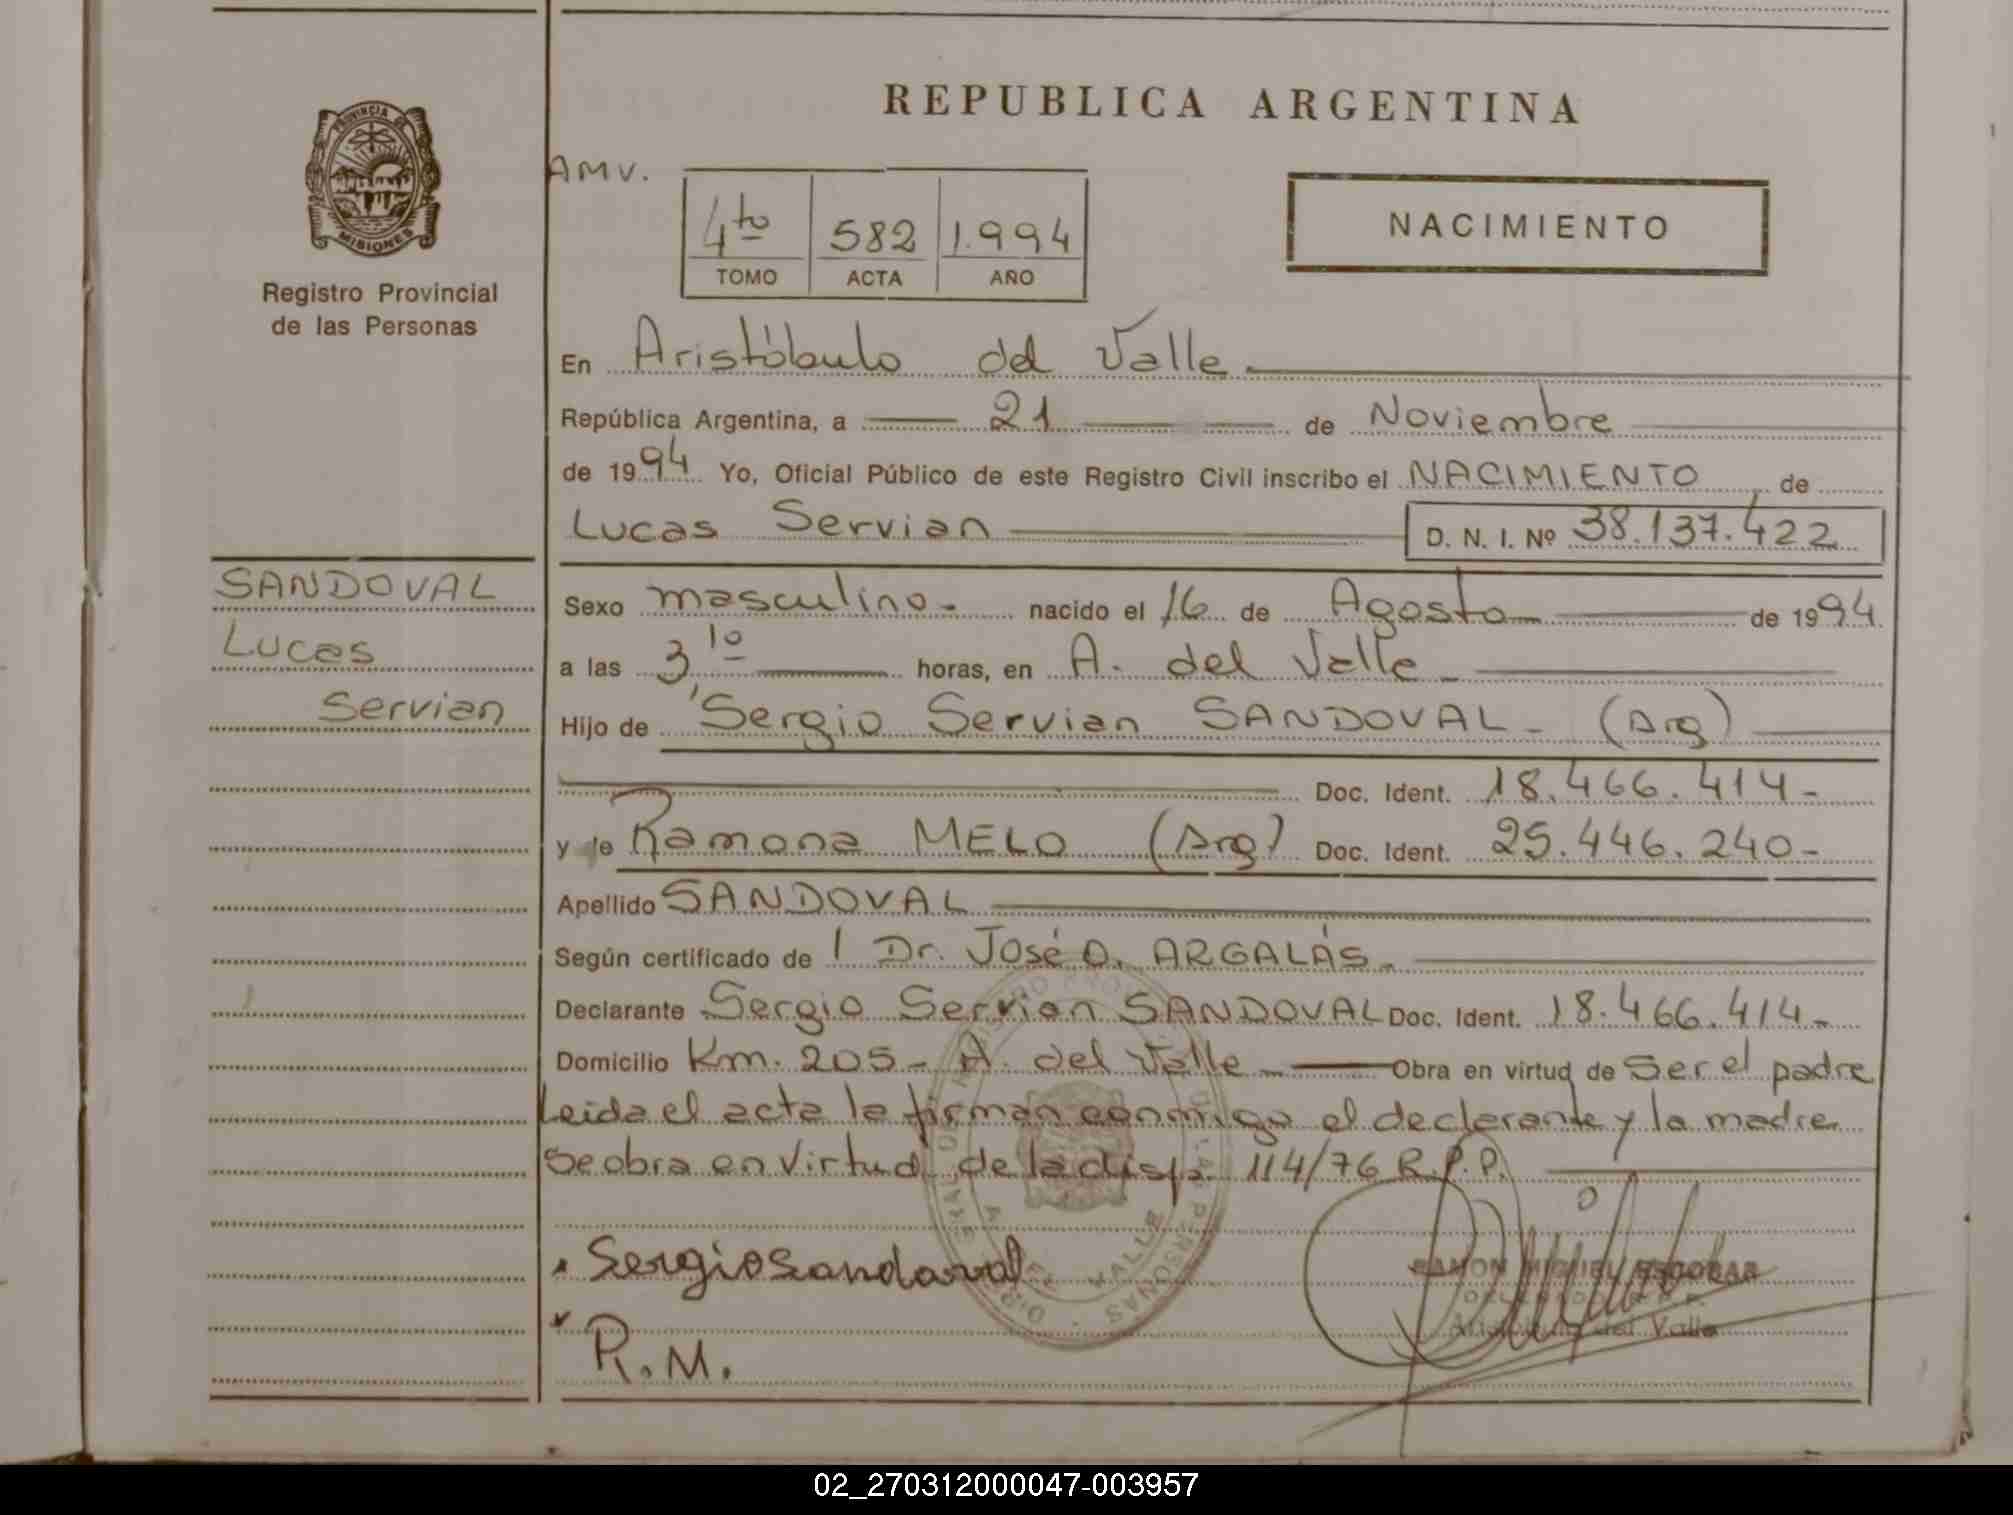 REPUBLICA ARGENTINA
PROVINCIA DE
MISIONES
Registro Provincial
de las Personas
AMV.
4to 582 1.994
TOMO ACTA AÑO
NACIMIENTO
En Aristóbulo del Valle
República Argentina, a 21 de Noviembre
de 1994 Yo, Oficial Público de este Registro Civil inscribo el NACIMIENTO de
Lucas Servian D. N. I. Nº 38.137.422
SANDOVAL
Lucas
Servian
Sexo masculino.- nacido el 16 de Agosto de 1994
a las 3,10 horas, en A. del Valle
Hijo de Sergio Servian SANDOVAL - (Arg)
Doc. Ident. 18.466.414-
y de Ramona MELO (Arg) Doc. Ident. 25.446.240-
Apellido SANDOVAL
Según certificado de l Dr. José O. ARGALÁS.
Declarante Sergio Servian SANDOVAL Doc. Ident. 18.466.414-
Domicilio Km. 205- A. del Valle Obra en virtud de Ser el padre
Leida el acta la firman conmigo el declarante y la madre
Se obra en virtud de la disp. 114/76 R.P.P.
Sergio Sandoval
RAMON MIGUEL ESCOBAR
Aristobulo del Valle
R.M.
02_270312000047-003957